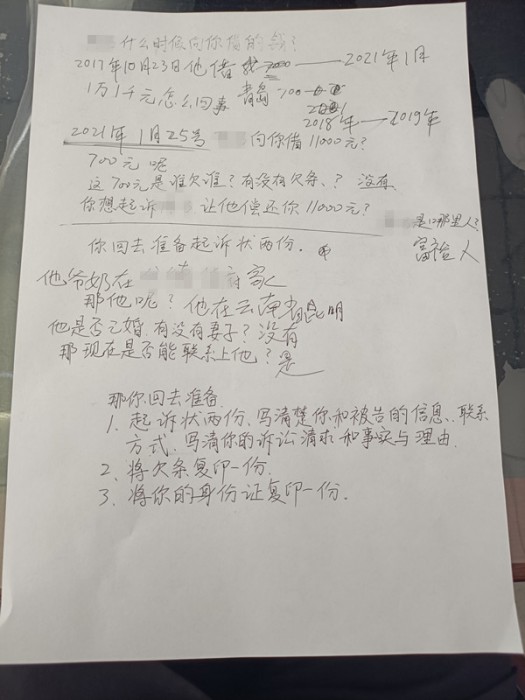 什么时候向你借的钱？
2017年10月23日他借我7000——2021年1月
1万1千元怎么回事 青岛 700
2018年→2019年
2021年1月25号 向你借11000元？
700元呢
这700元是谁欠谁？有没有欠条、？ 没有
你想起诉 让他偿还你11000元？
是哪里人？
你回去准备起诉状两份.
人
他爷奶在 家
那他呢？他在云南省昆明
他是否已婚.有没有妻子？没有
那现在是否能联系上他？是
那你回去准备
1. 起诉状两份、写清楚你和被告的信息、联系
方式、写清你的诉讼请求和事实与理由.
2. 将欠条复印一份.
3. 将你的身份证复印一份.